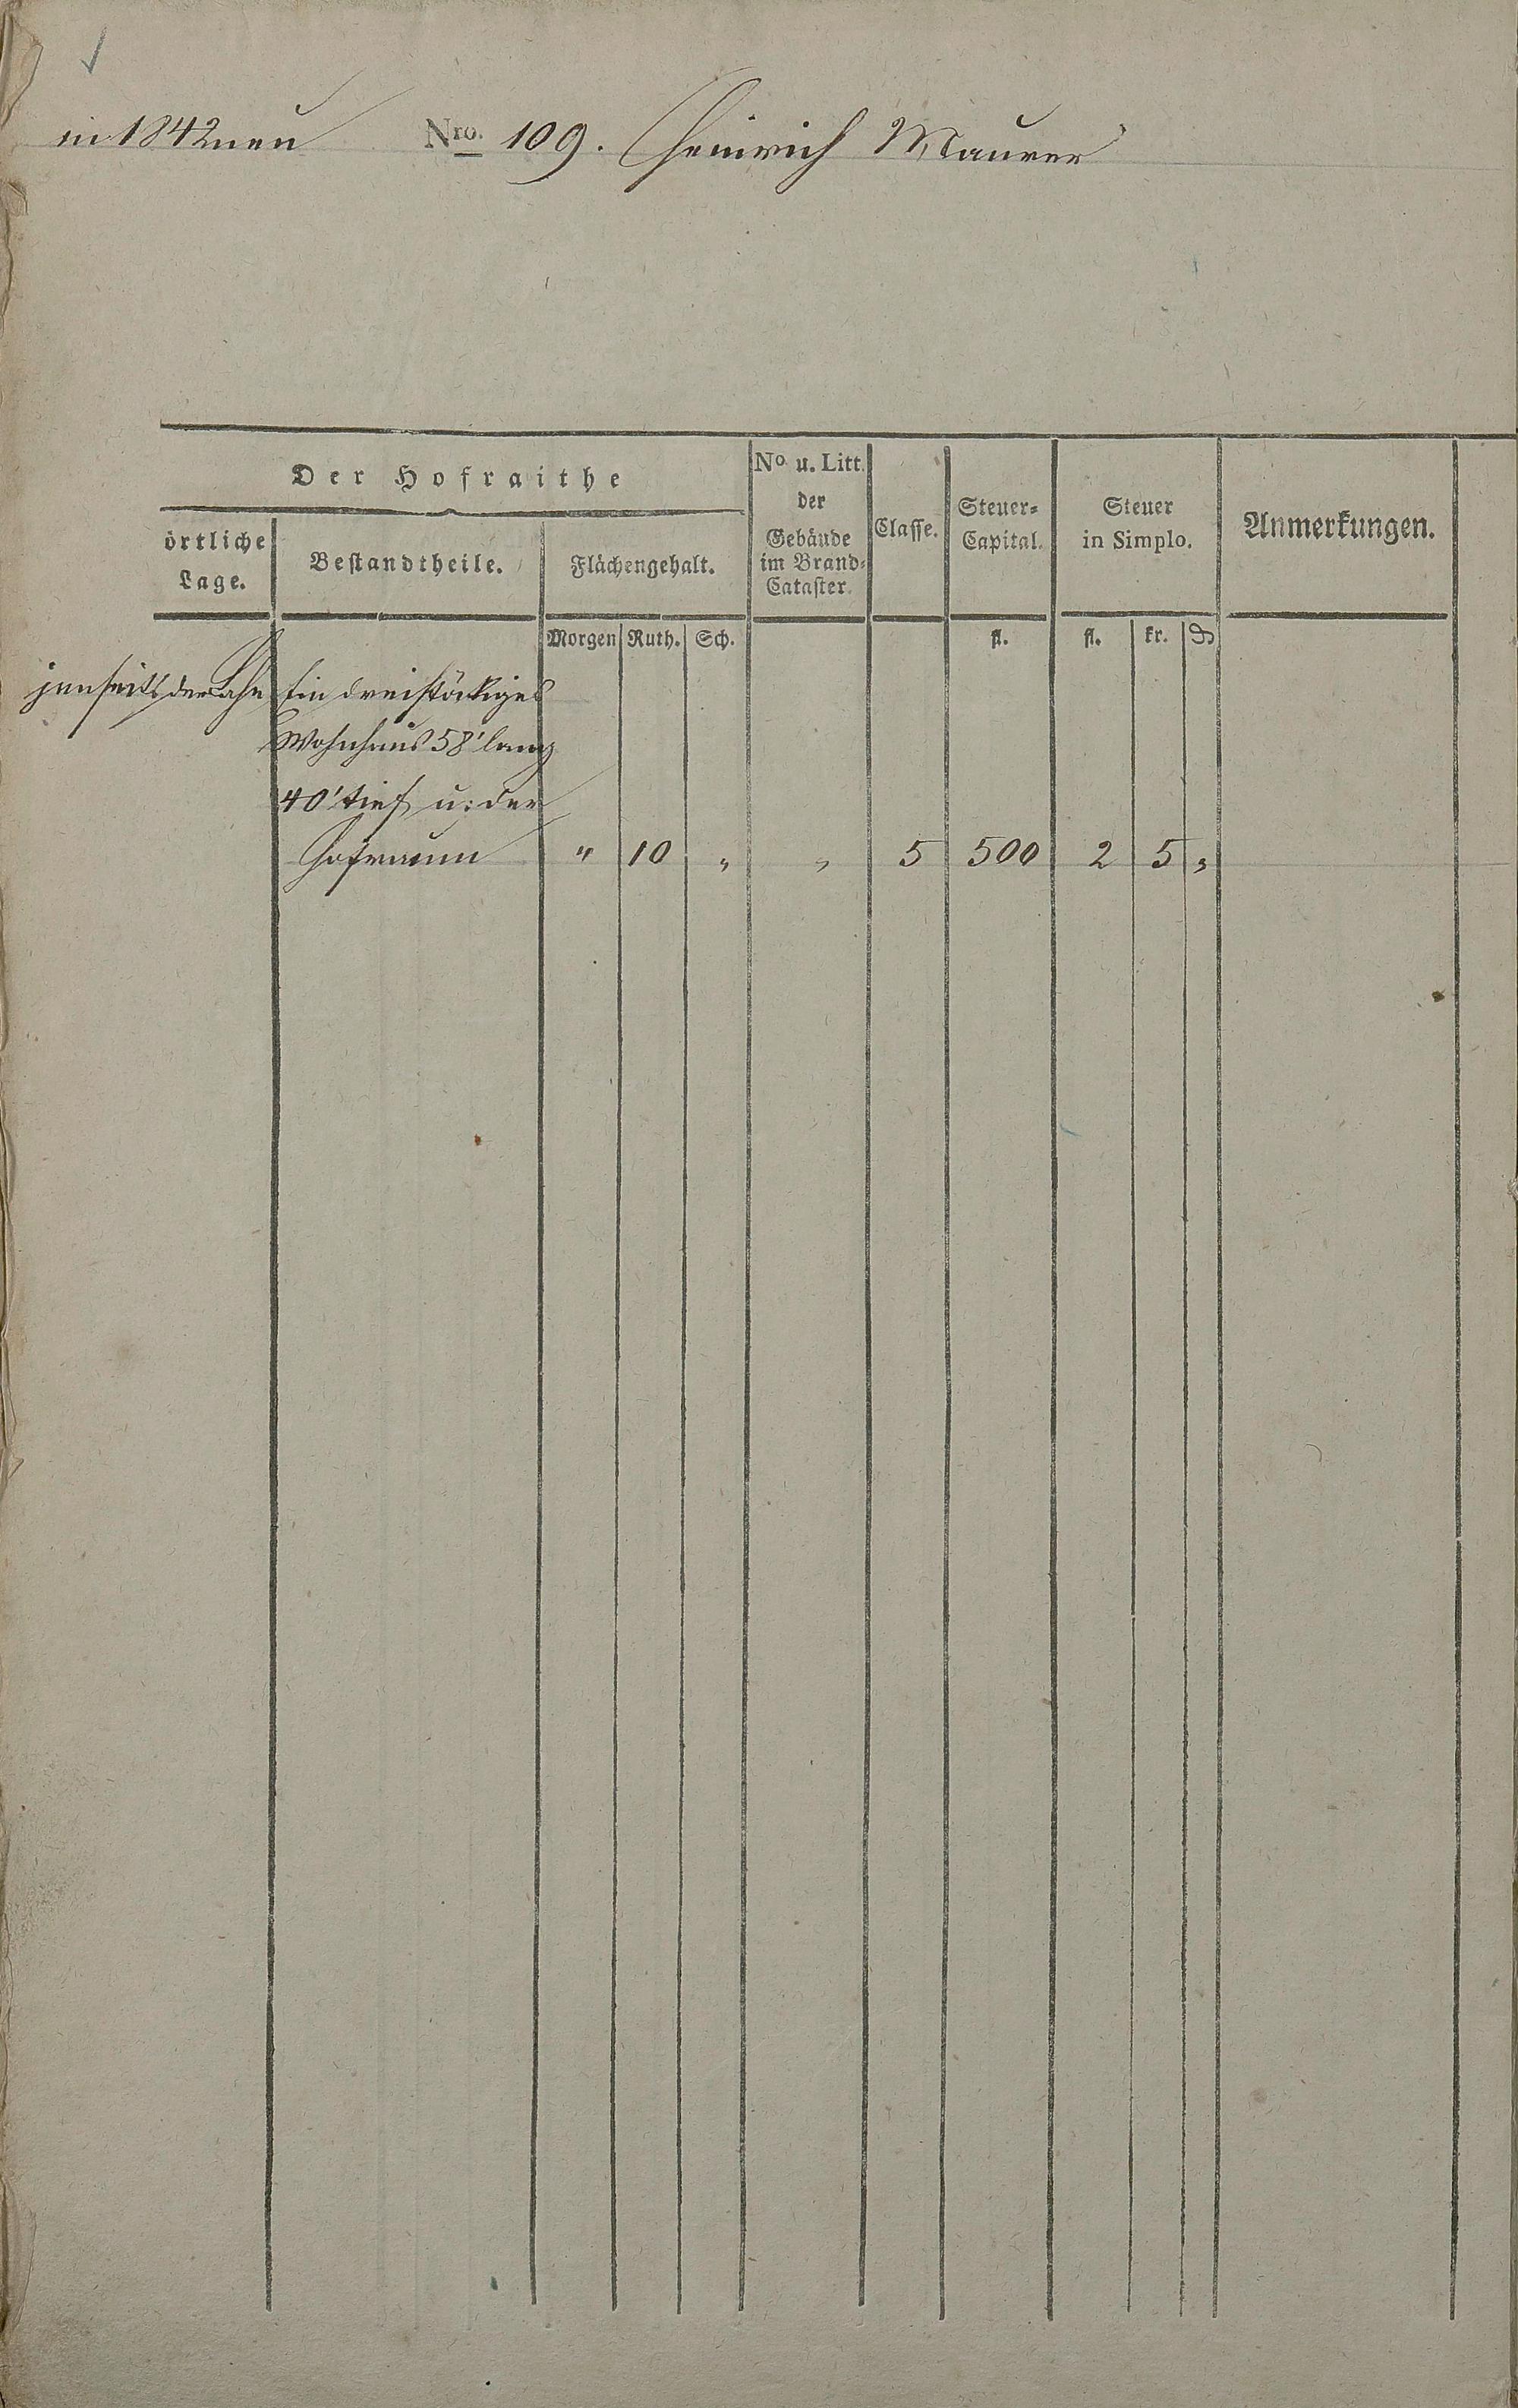 in 1842 neu Nro. 109. Heinrich Maurer
Der Hofraithe
örtliche Lage.
Bestandtheile.
Flächengehalt.
No. u. Litt. der Gebäude im Brand-Cataster.
Classe.
Steuer-Capital.
Steuer in Simplo.
Anmerkungen.
Morgen Ruth. Sch. fl. fl. kr. ₰
jenseits der Lahn Ein dreistöckiges
Wohnhaus 58' lang
40' tief u: der
Hofraum " 10 " " 5 500 2 5 "